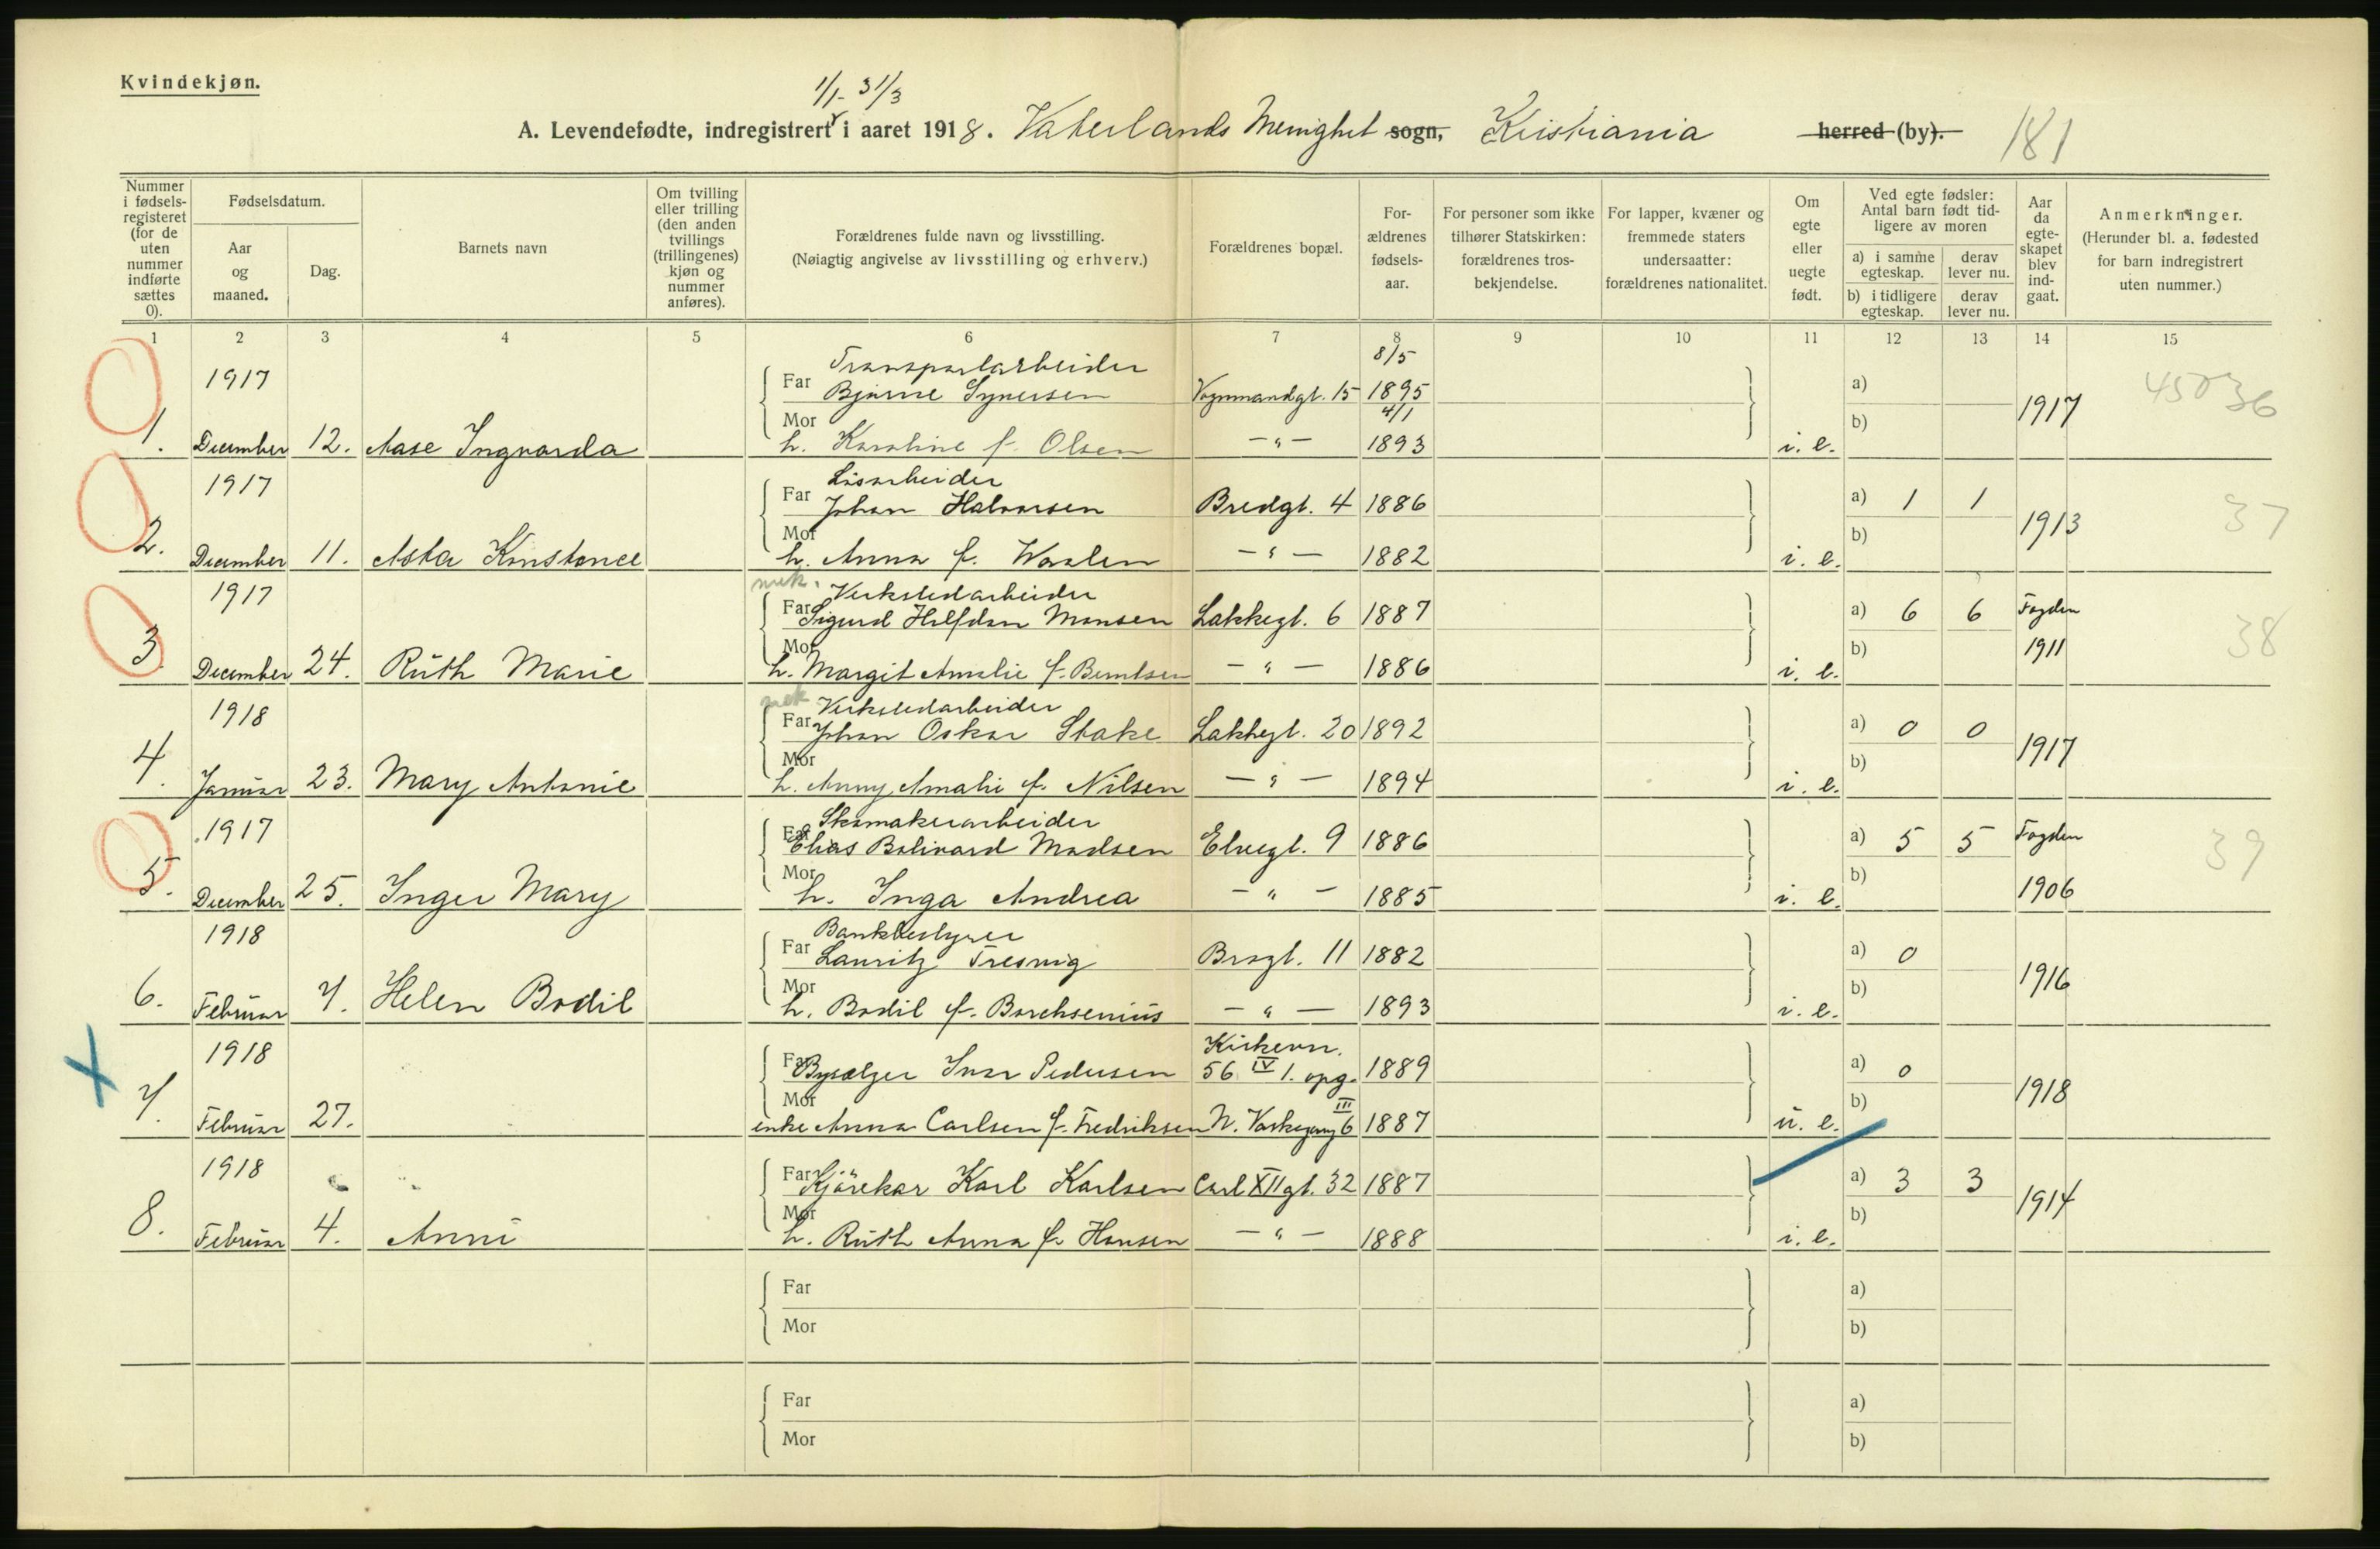 Kvindekjøn.
1/1 - 31/3
A. Levendefødte, indregistrert i aaret 1918. Vaterlands Menighet sogn, Kristiania herred (by). 181
Nummer i fødsels-registeret (for de uten nummer indførte sættes 0).
Fødselsdatum.
Aar og maaned.
Dag.
Barnets navn
Om tvilling eller trilling (den anden tvillings (trillingenes) kjøn og nummer anføres).
Forældrenes fulde navn og livsstilling.
(Nøiagtig angivelse av livsstilling og erhverv.)
Forældrenes bopæl.
For-ældrenes fødsels-aar.
For personer som ikke tilhører Statskirken: forældrenes tros-bekjendelse.
For lapper, kvæner og fremmede staters undersaatter: forældrenes nationalitet.
Om egte eller uegte født.
Ved egte fødsler: Antal barn født tid-ligere av moren
a) i samme egteskap.
derav lever nu.
b) i tidligere egteskap.
derav lever nu.
Aar da egte-skapet blev ind-gaat.
Anmerkninger.
(Herunder bl. a. fødested for barn indregistrert uten nummer.)
1 2 3 4 5 6 7 8 9 10 11 12 13 14 15
1917 Transportarbeider 8/5
Far Bjarne Synersen Vognmandgt. 15 1895 a) 1917 45036
4/1
1. December 12. Aase Ingvarda Mor h. Karoline f. Olsen —"— 1893 i. e. b)
1917 Løsarbeider
Far Johan Halvorsen Bredgt. 4 1886 a) 1 1 1913 37
2. December 11. Asta Konstance Mor h. Anna f. Waalen —"— 1882 i. e. b)
1917 mek. Verkstedarbeider
Far Sigurd Halfdan Monsen Lakkegt. 6 1887 a) 6 6 Fogden 38
3. December 24. Ruth Marie Mor h. Margit Amalie f. Berntsen —"— 1886 i. e. b) 1911
1918 mek Verkstedarbeider
Far Johan Oskar Stake Lakkegt. 20 1892 a) 0 0 1917
4. Januar 23. Mary Antonie Mor h. Anny Amalie f. Nilsen —"— 1894 i. e. b)
1917 Skomakerarbeider
Far Elias Bolivard Madsen Elvegt. 9 1886 a) 5 5 Fogden 39
5. December 25. Inger Mary Mor h. Inga Andrea —"— 1885 i. e. b) 1906
1918 Bankbestyrer
Far Lauritz Tresnig Brogt. 11 1882 a) 0 1916
6. Februar 7. Helen Bodil Mor h. Bodil f. Borchsenius —"— 1893 i. e. b)
1918 Kirkevn.
Far Bysælger Ivar Pedersen 56 IV 1. opg. 1889 a) 0 1918
7. Februar 27. Mor enke Anna Carlsen f. Fredriksen N. Vaskegang 6 III 1887 u. e. b)
1918
Far Kjørekar Karl Karlsen Carl XII gt. 32 1887 a) 3 3 1914
8. Februar 4. Anni Mor h. Ruth Anna f. Hansen —"— 1888 i. e. b)
Far a)
Mor b)
Far a)
Mor b)